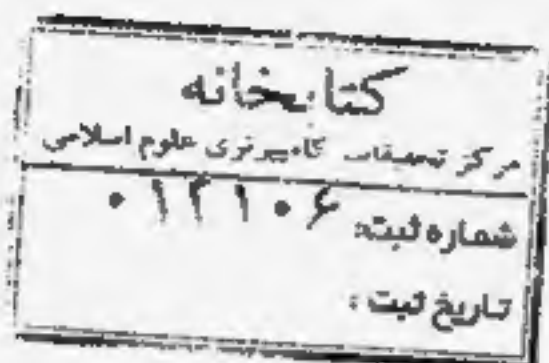 کتابخانه
مرکز تحقیقات کامپیوتری علوم اسلامی
شماره ثبت: ۰۱۲۱۰۶
تاریخ ثبت: